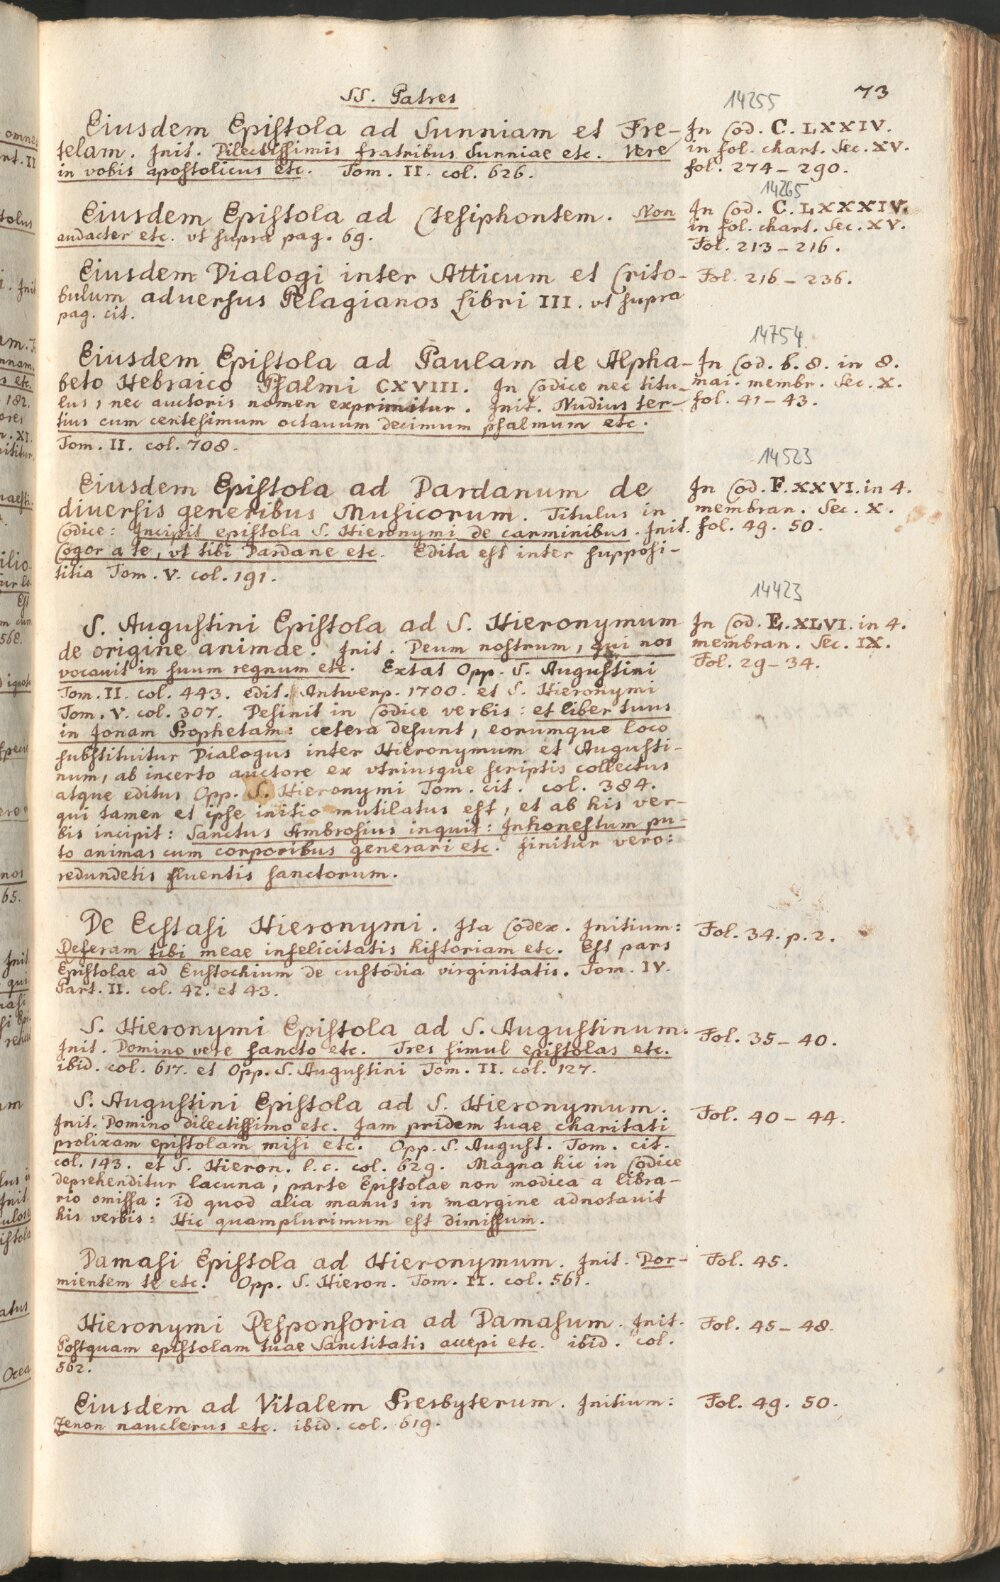 SS. Patres
73
14255
Eiusdem Epistola ad Sunniam et Fre-
telam. Init. Dilectissimis fratribus Sunniae etc. Vere
in vobis apostolicus etc. Tom. II. col. 626.
In Cod. C. LXXIV.
in fol. chart. Sec. XV.
fol. 274 – 290.
14265
Eiusdem Epistola ad Ctesiphontem. Non
audacter etc. vt supra pag. 69.
In Cod. C. LXXXIV.
in fol. chart. Sec. XV.
Fol. 213 – 216.
Eiusdem Dialogi inter Atticum et Crito-
bulum aduersus Pelagianos Libri III. vt supra
pag. cit.
Fol. 216 – 236.
14754
Eiusdem Epistola ad Paulam de Alpha-
beto Hebraico Psalmi CXVIII. In Codice nec titu-
lus, nec auctoris nomen exprimitur. Init. Nudius ter-
tius cum centesimum octauum decimum psalmum etc.
Tom. II. col. 708.
In Cod. b. 8. in 8.
mai. membr. Sec. X.
fol. 41 – 43.
14523
Eiusdem Epistola ad Dardanum de
diuersis generibus Musicorum. Titulus in
Codice: Incipit epistola S. Hieronymi de carminibus. Init.
Cogor a te, vt tibi Dardane etc. Edita est inter supposi-
titia Tom. V. col. 191.
In Cod. F. XXVI. in 4.
membran. Sec. X.
fol. 49. 50.
14423
S. Augustini Epistola ad S. Hieronymum
de origine animae. Init. Deum nostrum, qui nos
vocauit in suum regnum etc. Extat Opp. S. Augustini
Tom. II. col. 443. edit. Antwerp. 1700. et S. Hieronymi
Tom. V. col. 307. Desinit in Codice verbis: et liber tuus
in Jonam Prophetam: cetera desunt, eorumque loco
substituitur Dialogus inter Hieronymum et Augusti-
num, ab incerto auctore ex vtriusque scriptis collectus
atque editus Opp. S. Hieronymi Tom. cit. col. 384.
qui tamen et ipse initio mutilatus est, et ab his ver-
bis incipit: Sanctus Ambrosius inquit: Inhonestum pu-
to animas cum corporibus generari etc. finitur vero:
redundetis fluentis sanctorum.
In Cod. E. XLVI. in 4.
membran. Sec. IX.
Fol. 29 – 34.
De Ecstasi Hieronymi. Ita Codex. Initium:
Deferam tibi meae infelicitatis historiam etc. Est pars
Epistolae ad Eustochium de custodia virginitatis. Tom. IV.
Part. II. col. 42. et 43.
Fol. 34. p. 2.
S. Hieronymi Epistola ad S. Augustinum.
Init. Domino vere sancto etc. Tres simul epistolas etc.
ibid. col. 617. et Opp. S. Augustini Tom. II. col. 127.
Fol. 35 – 40.
S. Augustini Epistola ad S. Hieronymum.
Init. Domino dilectissimo etc. Jam pridem tuae charitati
prolixam epistolam misi etc. Opp. S. August. Tom. cit.
col. 143. et S. Hieron. l. c. col. 629. Magna hic in Codice
deprehenditur lacuna, parte Epistolae non modica a libra-
rio omissa: id quod alia manus in margine adnotauit
his verbis: Hic quamplurimum est dimissum.
Fol. 40 – 44.
Damasi Epistola ad Hieronymum. Init. Dor-
mientem te etc. Opp. S. Hieron. Tom. II. col. 561.
Fol. 45.
Hieronymi Responsoria ad Damasum. Init.
Postquam epistolam tuae Sanctitatis accepi etc. ibid. col.
562.
Fol. 45 – 48.
Eiusdem ad Vitalem Presbyterum. Initium:
Zenon nauclerus etc. ibid. col. 619.
Fol. 49. 50.